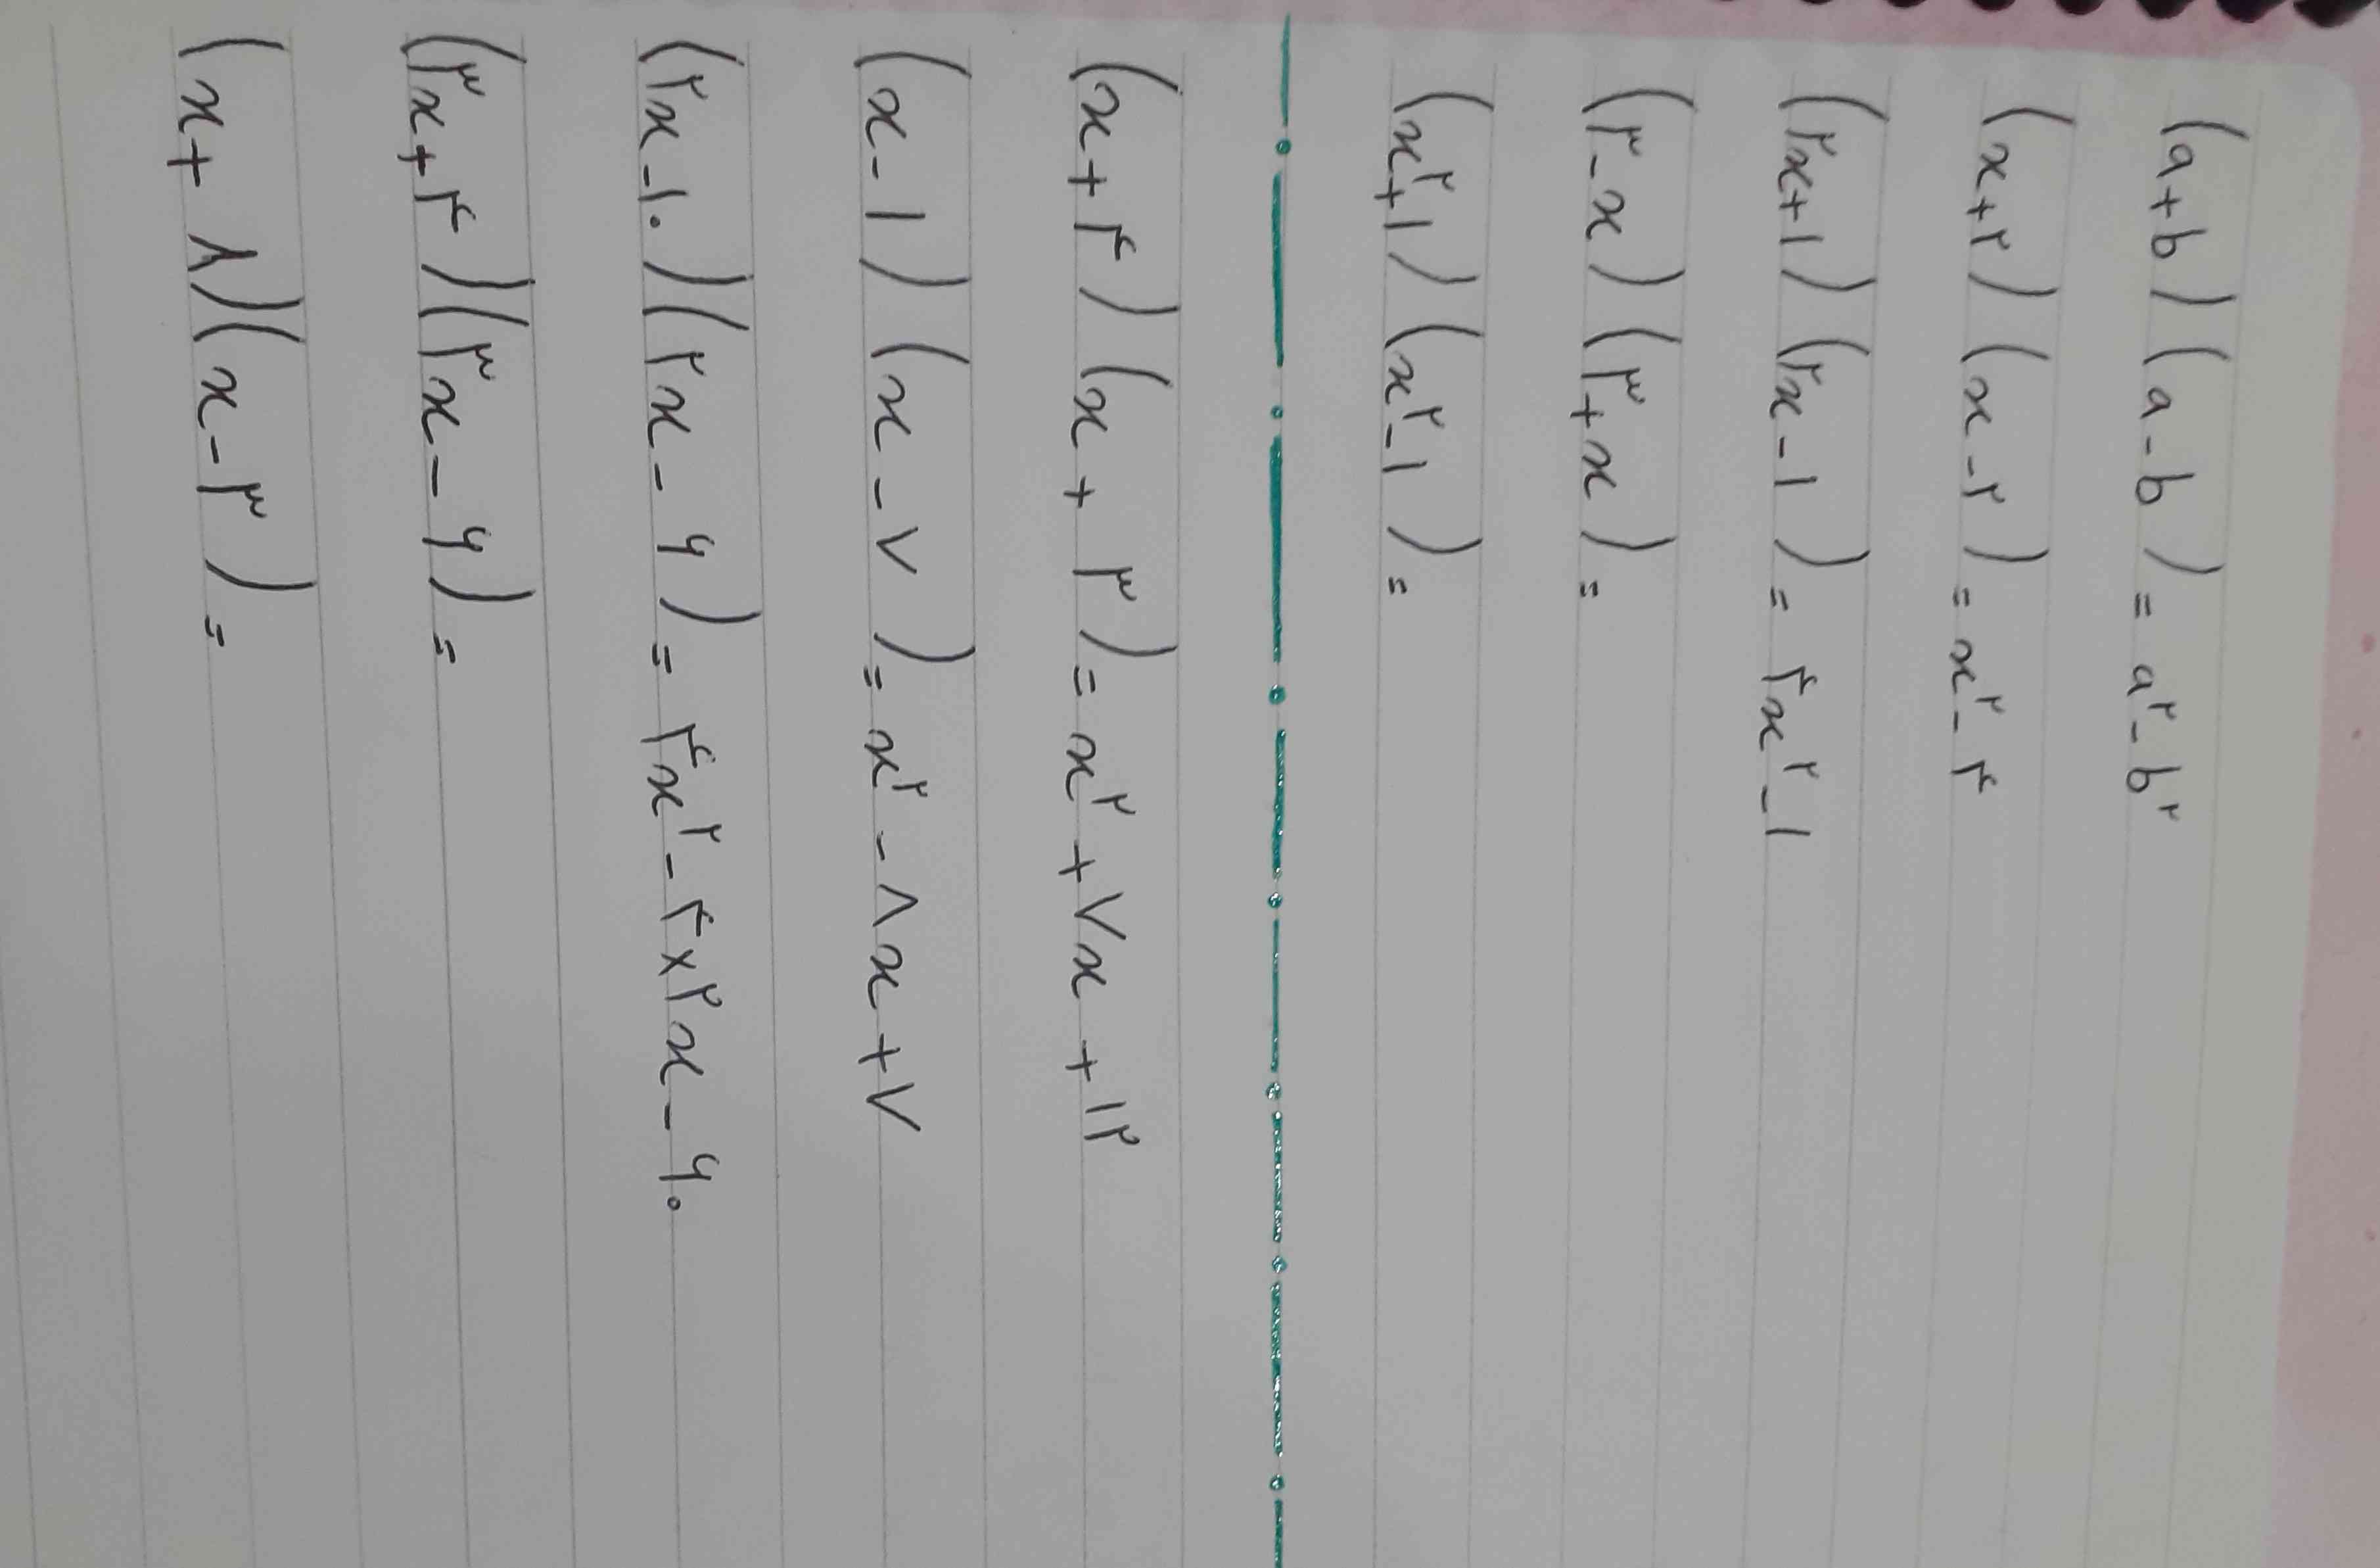 (a+b)(a-b) = a²-b²
(x+۲)(x-۲) = x²-۴
(۲x+۱)(۲x-۱) = ۴x²-۱
(۳-x)(۳+x) =
(x²+۱)(x²-۱) =
(x+۴)(x+۳) = x²+۷x+۱۲
(x-۱)(x-۷) = x²-۸x+۷
(۲x-۱۰)(۲x-۶) = ۴x²-۴×۲x-۶۰
(۳x+۴)(۳x-۶) =
(x+۸)(x-۳) =